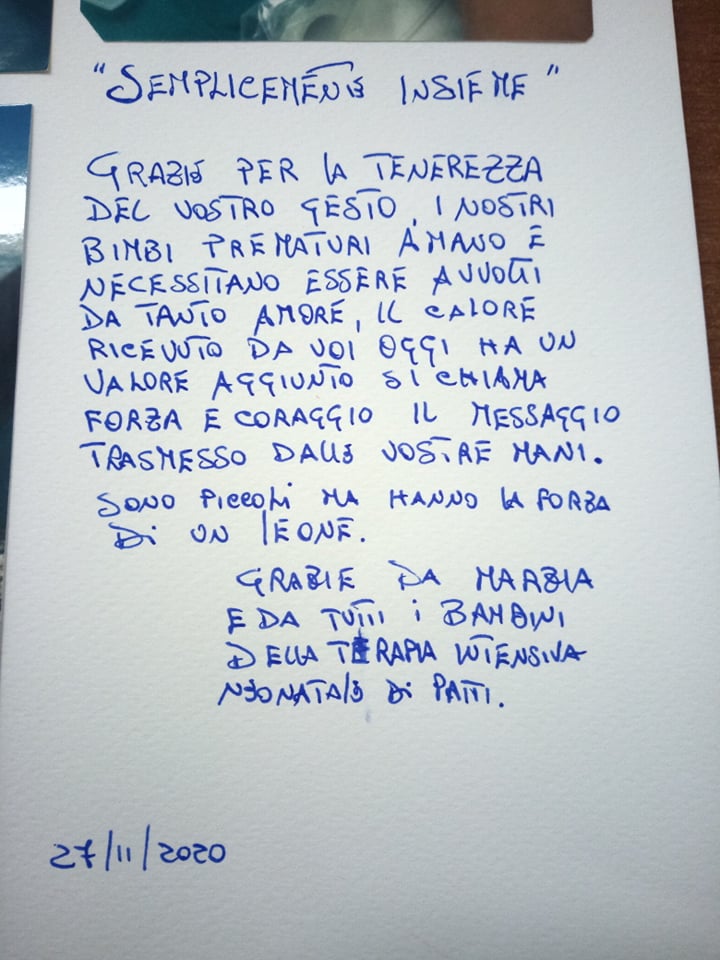 "SEMPLICEMENTE INSIEME"
GRAZIE PER LA TENEREZZA
DEL VOSTRO GESTO, I NOSTRI
BIMBI PREMATURI AMANO E
NECESSITANO ESSERE AVVOLTI
DA TANTO AMORE, IL CALORE
RICEVUTO DA VOI OGGI HA UN
VALORE AGGIUNTO SI CHIAMA
FORZA E CORAGGIO IL MESSAGGIO
TRASMESSO DALLE VOSTRE MANI.
SONO PICCOLI MA HANNO LA FORZA
DI UN LEONE.
GRAZIE DA MARZIA
E DA TUTTI I BAMBINI
DELLA TERAPIA INTENSIVA
NEONATALE DI PATTI.
27/11/2020